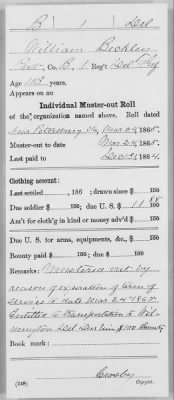 B 1 Del
William Bechley
Pvt, Co. B, 1 Reg't Del Inf
Age 18 years.
Appears on an
Individual Muster-out Roll
of the organization named above. Roll dated
Near Petersburg Va, Mar 24, 1865.
Muster-out to date Mar 24, 1865.
Last paid to Dec 31, 1864.
Clothing account:
Last settled , 186 ; drawn since $ 100
Due soldier $ 100; due U. S. $ 11 88/100
Am't for cloth'g in kind or money adv'd $ 100
Due U. S. for arms, equipments, &c., $ 100
Bounty paid $ 100; due $ 100
Remarks: Mustered out by
reason of expiration of term of
service to date Mar 24 1865.
Entitled to Transportation to Wil-
mington Del Due him $100 Bounty
Book mark:
Crosby
(348) Copyist.